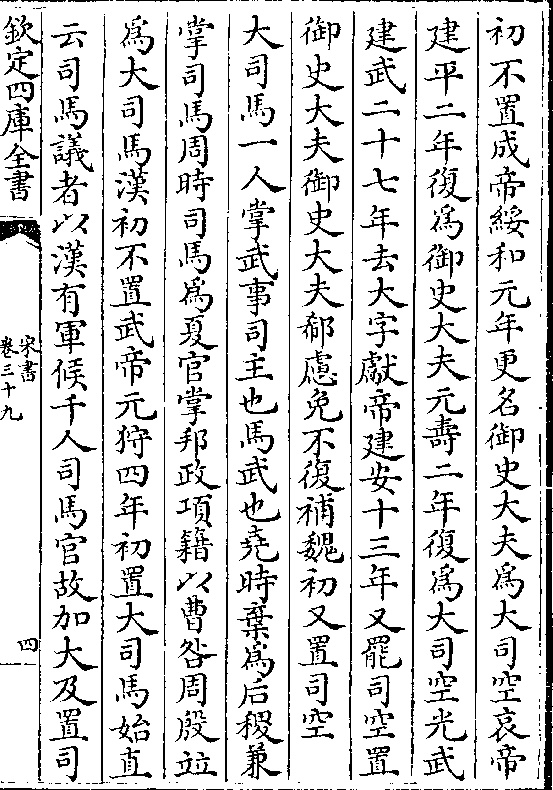 初不置成帝綏和元年更名御史大夫爲大司空哀帝
建平二年復爲御史大夫元壽二年復爲大司空光武
建武二十七年去大字獻帝建安十三年又罷司空置
御史大夫御史大夫郗慮免不復補魏初又置司空
大司馬一人掌武事司主也馬武也堯時棄爲后稷兼
掌司馬周時司馬爲夏官掌邦政項籍以曹咎周殷竝
爲大司馬漢初不置武帝元狩四年初置大司馬始直
云司馬議者以漢有軍候千人司馬官故加大及置司
欽定四庫全書
宋書
卷三十九
四